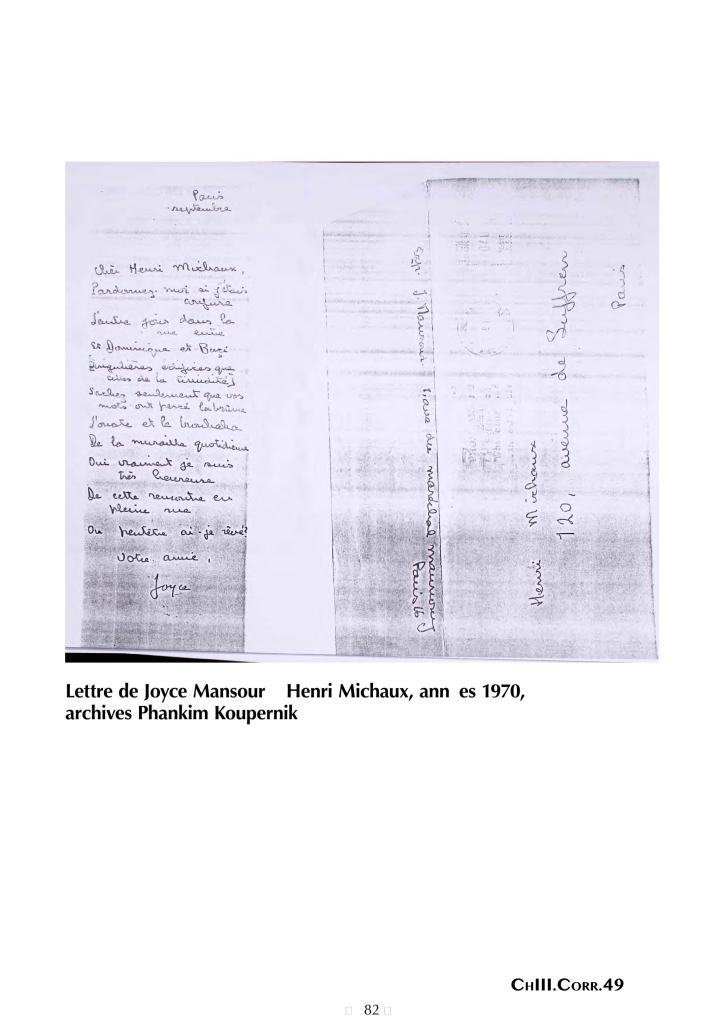 Paris
septembre
Cher Henri Michaux,
Pardonnez-moi si j'étais
confuse
L'autre jour dans la
rue entre
St Dominique et Buci
Singulières édifices que
de la timidité)
Sachez seulement que vos
mots ont percé la brume
L'ouate et le brouhaha
De la muraille quotidienne
Oui vraiment je suis
très heureuse
De cette rencontre en
pleine rue
Ou peutêtre ai-je rêvé?
Votre amie,
Joyce
J. Mansour du maréchal maunoury
Paris 16
Henri Michaux
120, avenue de Suffren
Paris
Lettre de Joyce Mansour Henri Michaux, ann es 1970,
archives Phankim Koupernik
CHIII.CORR.49
82